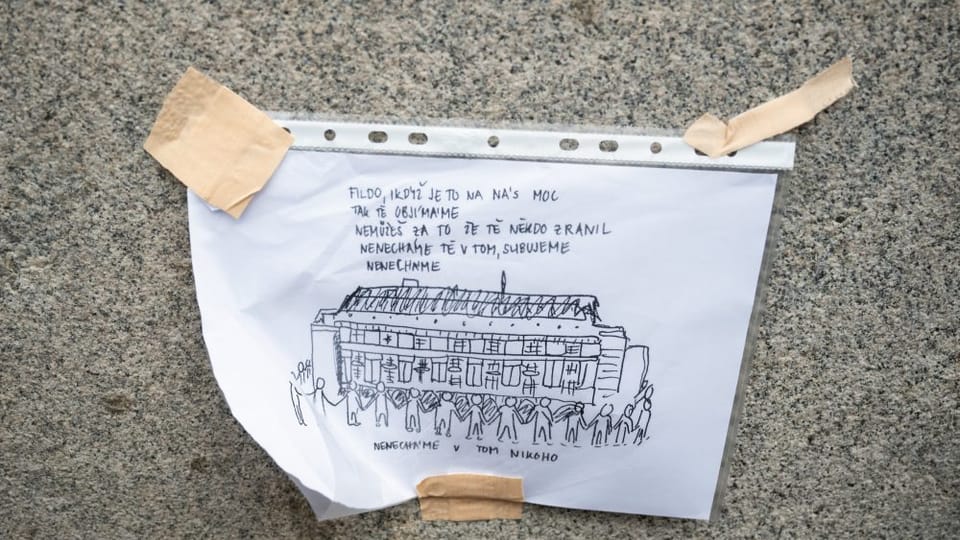 FILDO, I KDYŽ JE TO NA NÁS MOC
TAK TĚ OBJÍMÁME
NEMŮŽEŠ ZA TO ŽE TĚ NĚKDO ZRANIL
NENECHÁME TĚ V TOM, SLIBUJEME
NENECHÁME
NENECHÁME V TOM NIKOHO